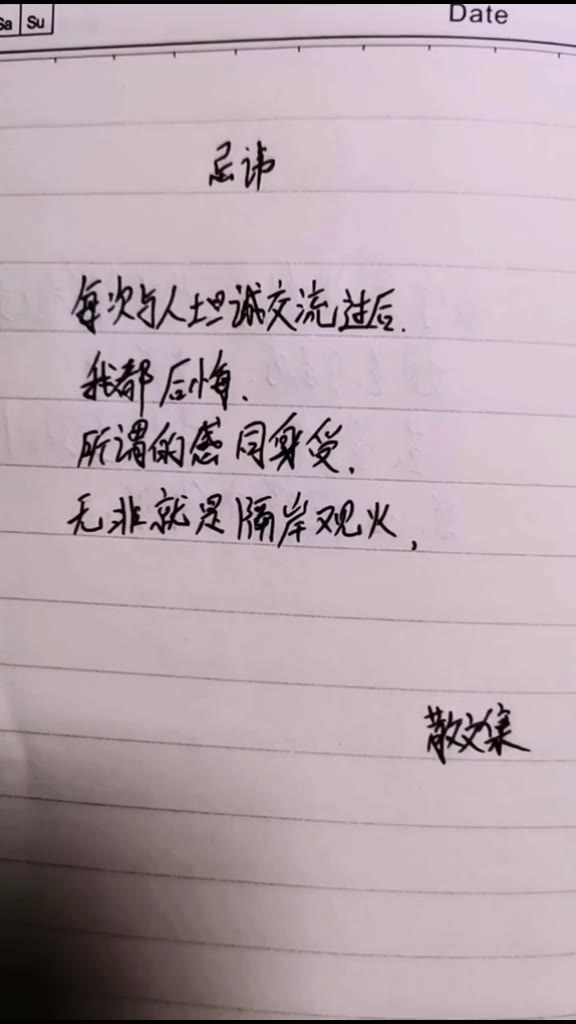 Sa Su
Date
忌讳
每次与人坦诚交流过后.
我都后悔.
所谓的感同身受.
无非就是隔岸观火,
散文集